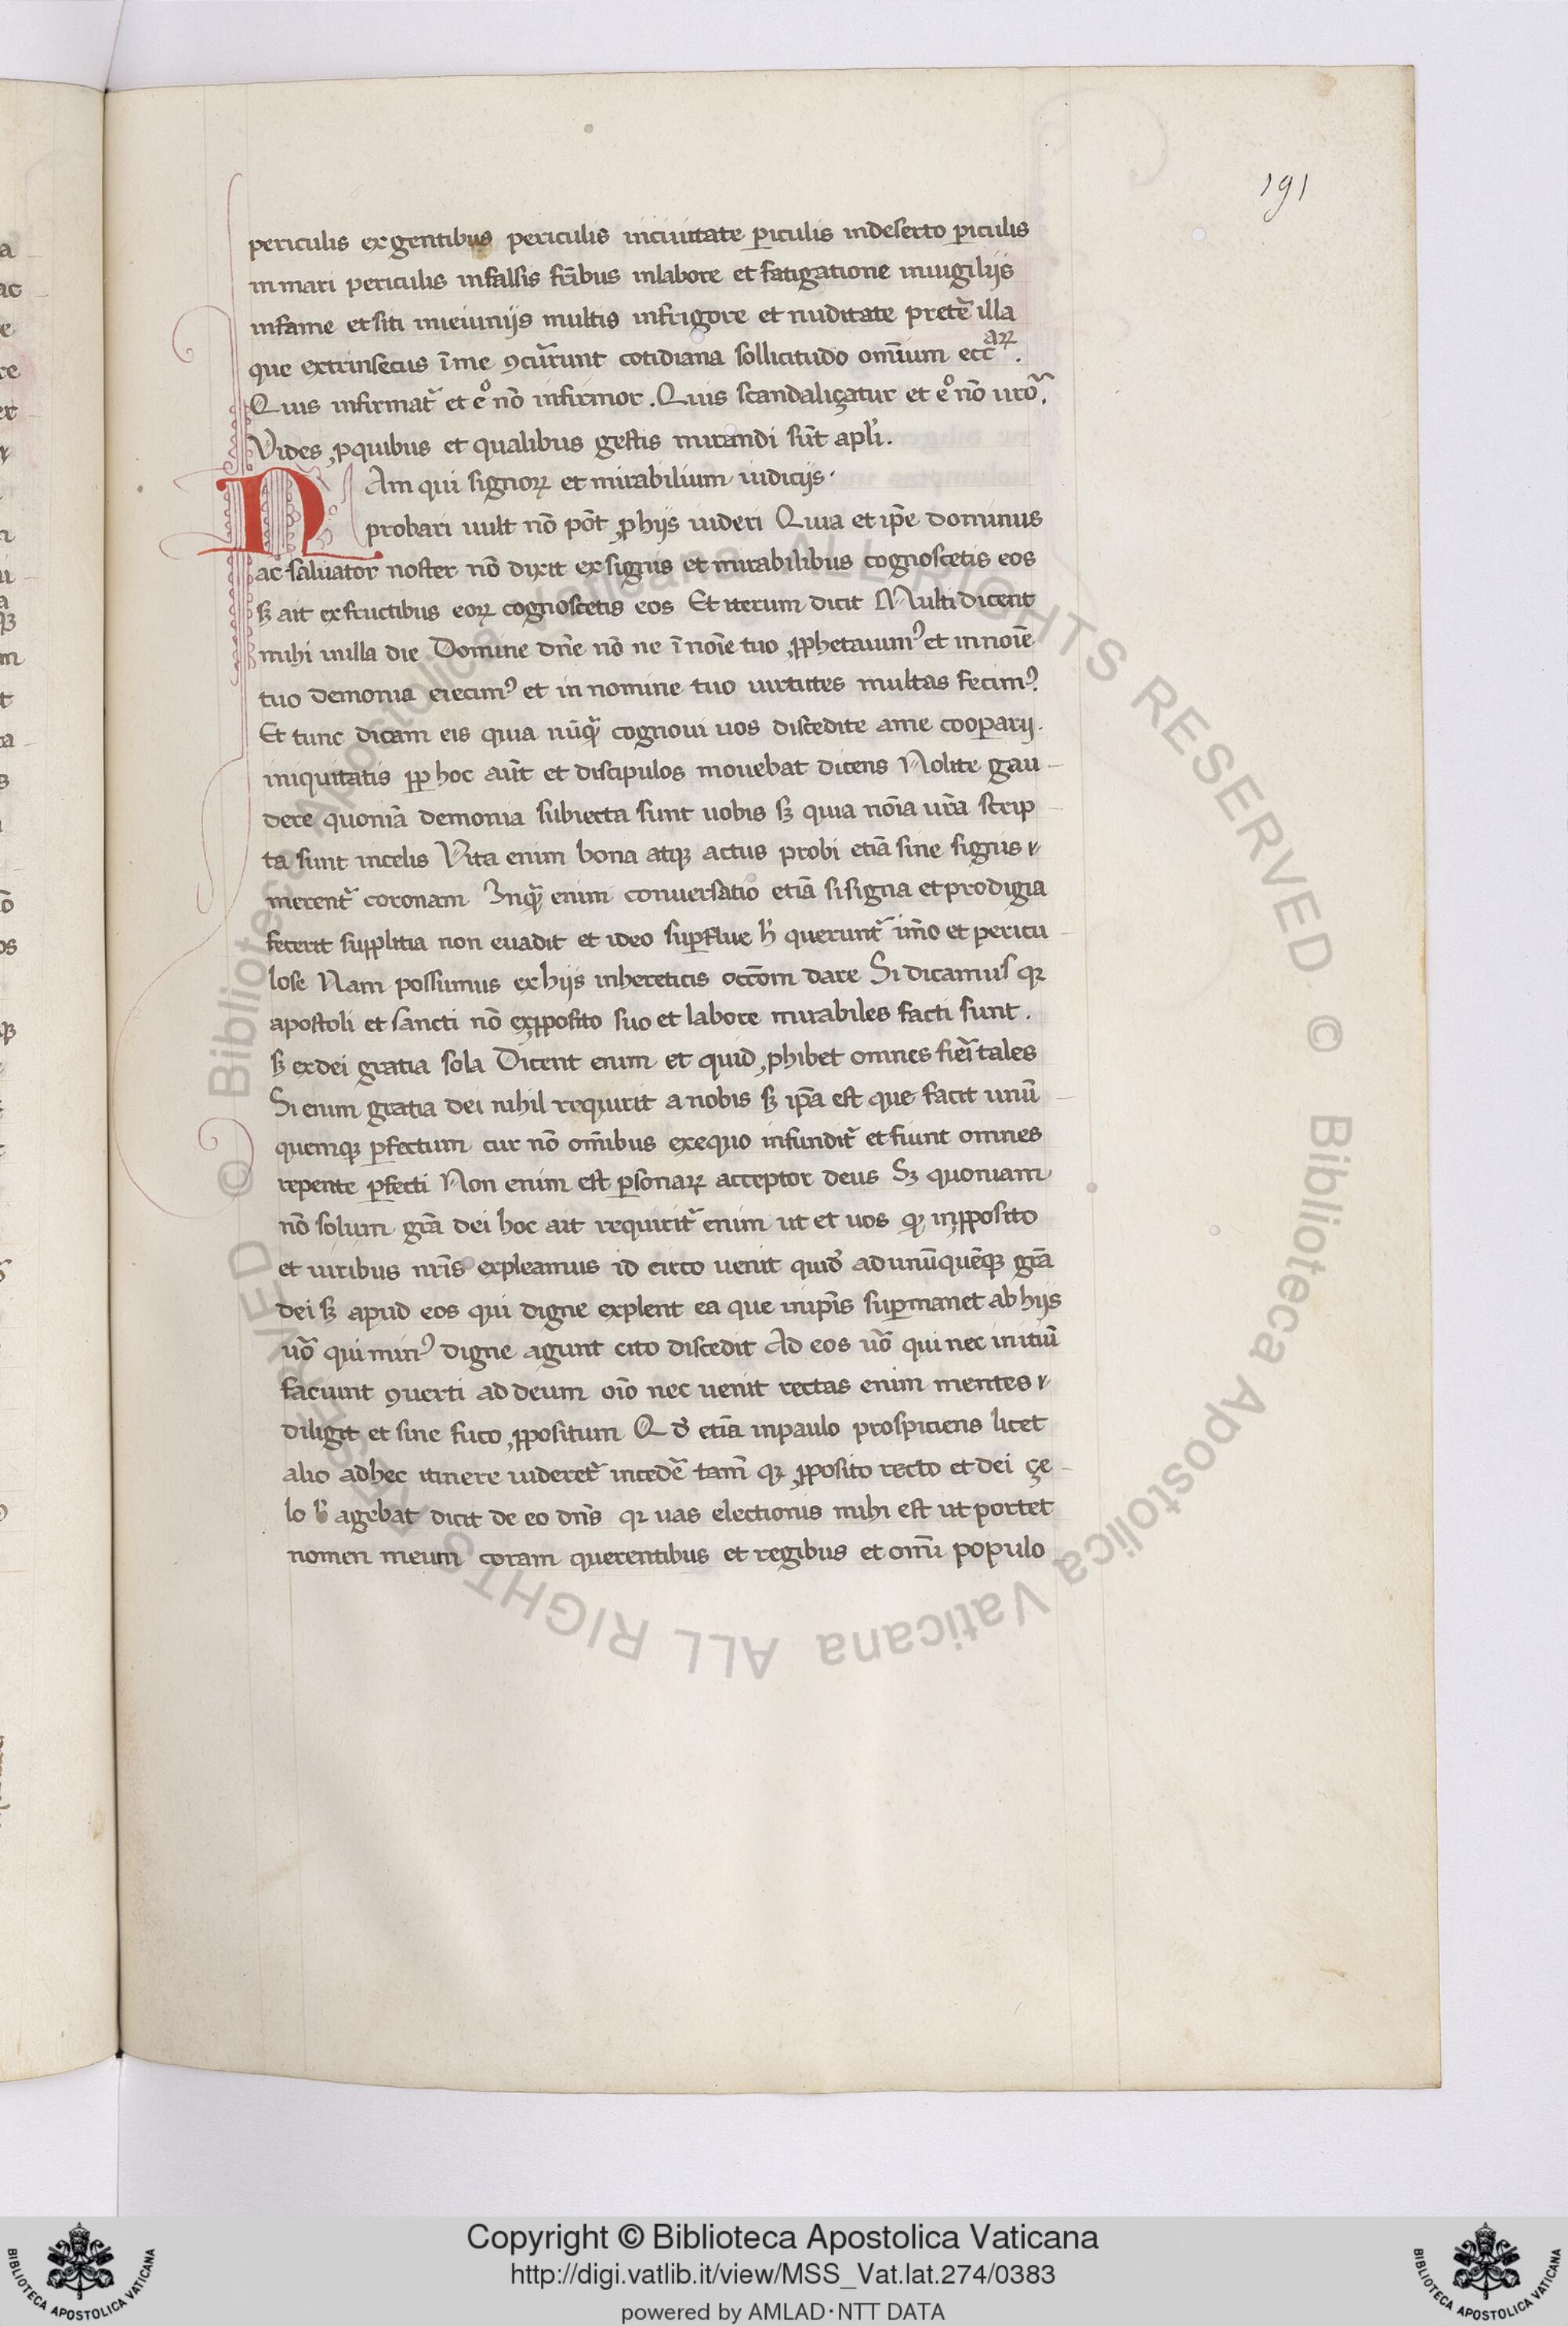 191
periculis ex gentibus periculis inciuitate ꝑiculis indeserto ꝑiculis
in mari periculis infalsis fr̄ibus inlabore et fatigatione inuigilijs
infame et siti inieiunijs multis infrigore et nuditate pretẽ illa
que extrinsecus ĩme ꝯcur̃unt cotidiana sollicitudo om̄ium eccaꝝ.
Quis infirmat᷑ et eͦ nō infirmor. Quis scandaliçatur et eͦ nō uroꝛ̃.
Vides ꝓquibus et qualibus gestis mirandi sūt apl̃i.
NAm qui signoꝝ et mirabilium iudicijs·
probari uult nō pōt ꝓhijs uideri Quia et ip̄e dominus
ac saluator noster nō dixit ex signis et mirabilibus cognoscetis eos
sꝫ ait exfructibus eoꝝ cognoscetis eos Et iterum dicit Multi dicent
mihi inilla die Domine dn̄e nō ne ĩ noīe tuo ꝓphetauimꝰ et innoīe
tuo demonia eiecimꝰ et in nomine tuo uirtutes multas fecimꝰ.
Et tunc dicam eis quia nūq̃ cognoui uos discedite ame cooꝑarij.
iniquitatis ꝓp hoc aūt et discipulos mouebat dicens Nolite gau
dere quoniā demonia subiecta sunt uobis sꝫ quia nōia ur̄a scrip
ta sunt incelis Vita enim bona atqꝫ actus probi etiā sine signis
merent᷑ coronam Iniq̃ enim conuersatio etiā si signa et prodigia
fecerit supplitia non euadit et ideo suꝑflue h̄ querunt᷑ im̄o et pericu
lose Nam possumus ex hijs inhereticis occōm dare Si dicamus qꝛ
apostoli et sancti nō exꝓposito suo et labore mirabiles facti sunt.
sꝫ exdei gratia sola Dicent enim et quid ꝓhibet omnes fieī tales
Si enim gratia dei nihil requirit a nobis sꝫ ip̄a est que facit unū
quemqꝫ ꝑfectum cur nō om̄ibus exequo infundit᷑ et fiunt omnes
repente ꝑfecti Non enim est ꝑsonaꝝ acceptor deus Sꝫ quoniam
nō solum gr̄a dei hoc ait requirit᷑ enim ut et uos qꝫ inꝓposito
et uiribus nr̄is expleamus id circo uenit quid̃ ad unūquēqꝫ gr̄a
dei sꝫ apud eos qui digne explent ea que inip̄is suꝑmanet ab hijs
uō qui minꝰ digne agunt cito discedit Ad eos uō qui nec initiū
faciunt ꝯuerti ad deum oīo nec uenit rectas enim mentes
diligit et sine fuco ꝓpositum Qd̃ etiā inpaulo prospiciens licet
alio adhec itinere uideret᷑ incedẽ tam̄ qꝛ ꝓposito recto et dei çe
lo h̄ agebat dicit de eo dn̄s qꝛ uas electionis mihi est ut portet
nomen meum coram querentibus et regibus et omī populo
Copyright © Biblioteca Apostolica Vaticana
http://digi.vatlib.it/view/MSS_Vat.lat.274/0383
powered by AMLAD·NTT DATA
BIBLIOTECA APOSTOLICA VATICANA
BIBLIOTECA APOSTOLICA VATICANA
© Biblioteca Apostolica Vaticana ALL RIGHTS RESERVED © Biblioteca Apostolica Vaticana ALL RIGHTS RESERVED